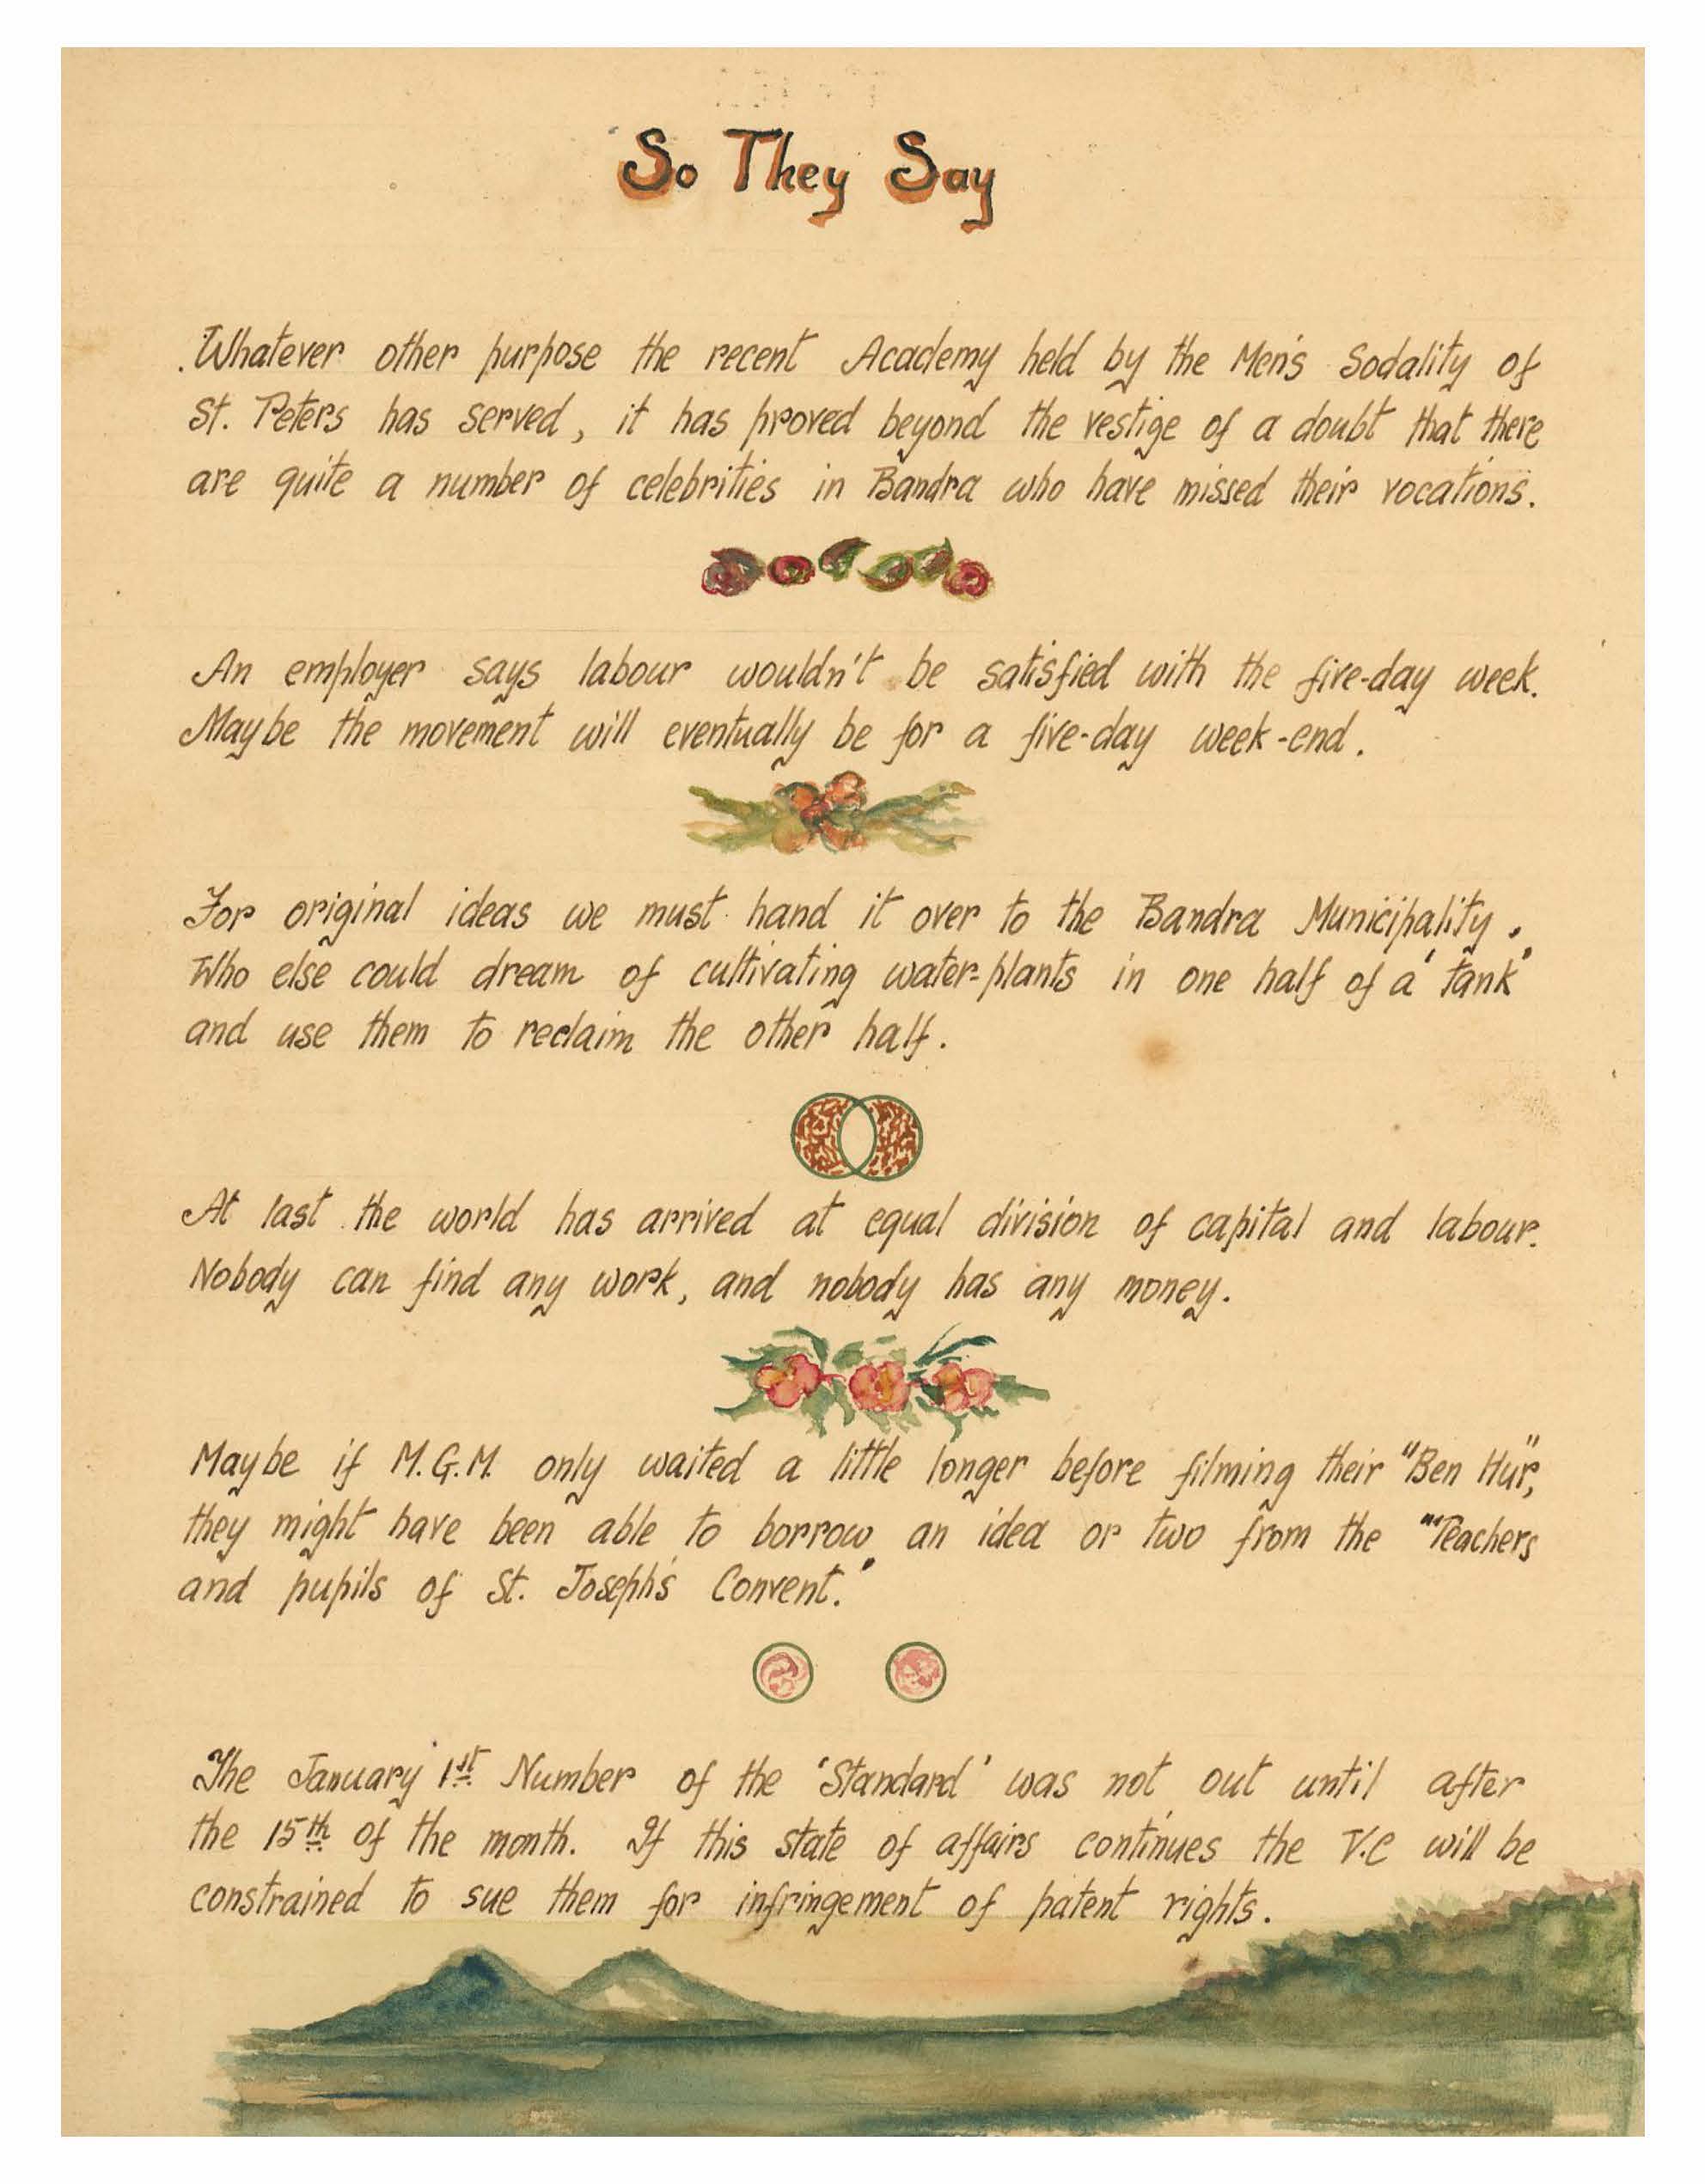 So They Say
Whatever other purpose the recent Academy held by the Men's Sodality of
St. Peters has served, it has proved beyond the vestige of a doubt that there
are quite a number of celebrities in Bandra who have missed their vocations.
An employer says labour wouldn't be satisfied with the five-day week.
Maybe the movement will eventually be for a five-day week-end.
For original ideas we must hand it over to the Bandra Municipality.
Who else could dream of cultivating water-plants in one half of a 'tank'
and use them to reclaim the other half.
At last the world has arrived at equal division of capital and labour.
Nobody can find any work, and nobody has any money.
Maybe if M.G.M. only waited a little longer before filming their "Ben Hur",
they might have been able to borrow an idea or two from the "Teachers
and pupils of St. Joseph's Convent."
The January 1st Number of the 'Standard' was not out until after
the 15th of the month. If this state of affairs continues the V.C will be
constrained to sue them for infringement of patent rights.